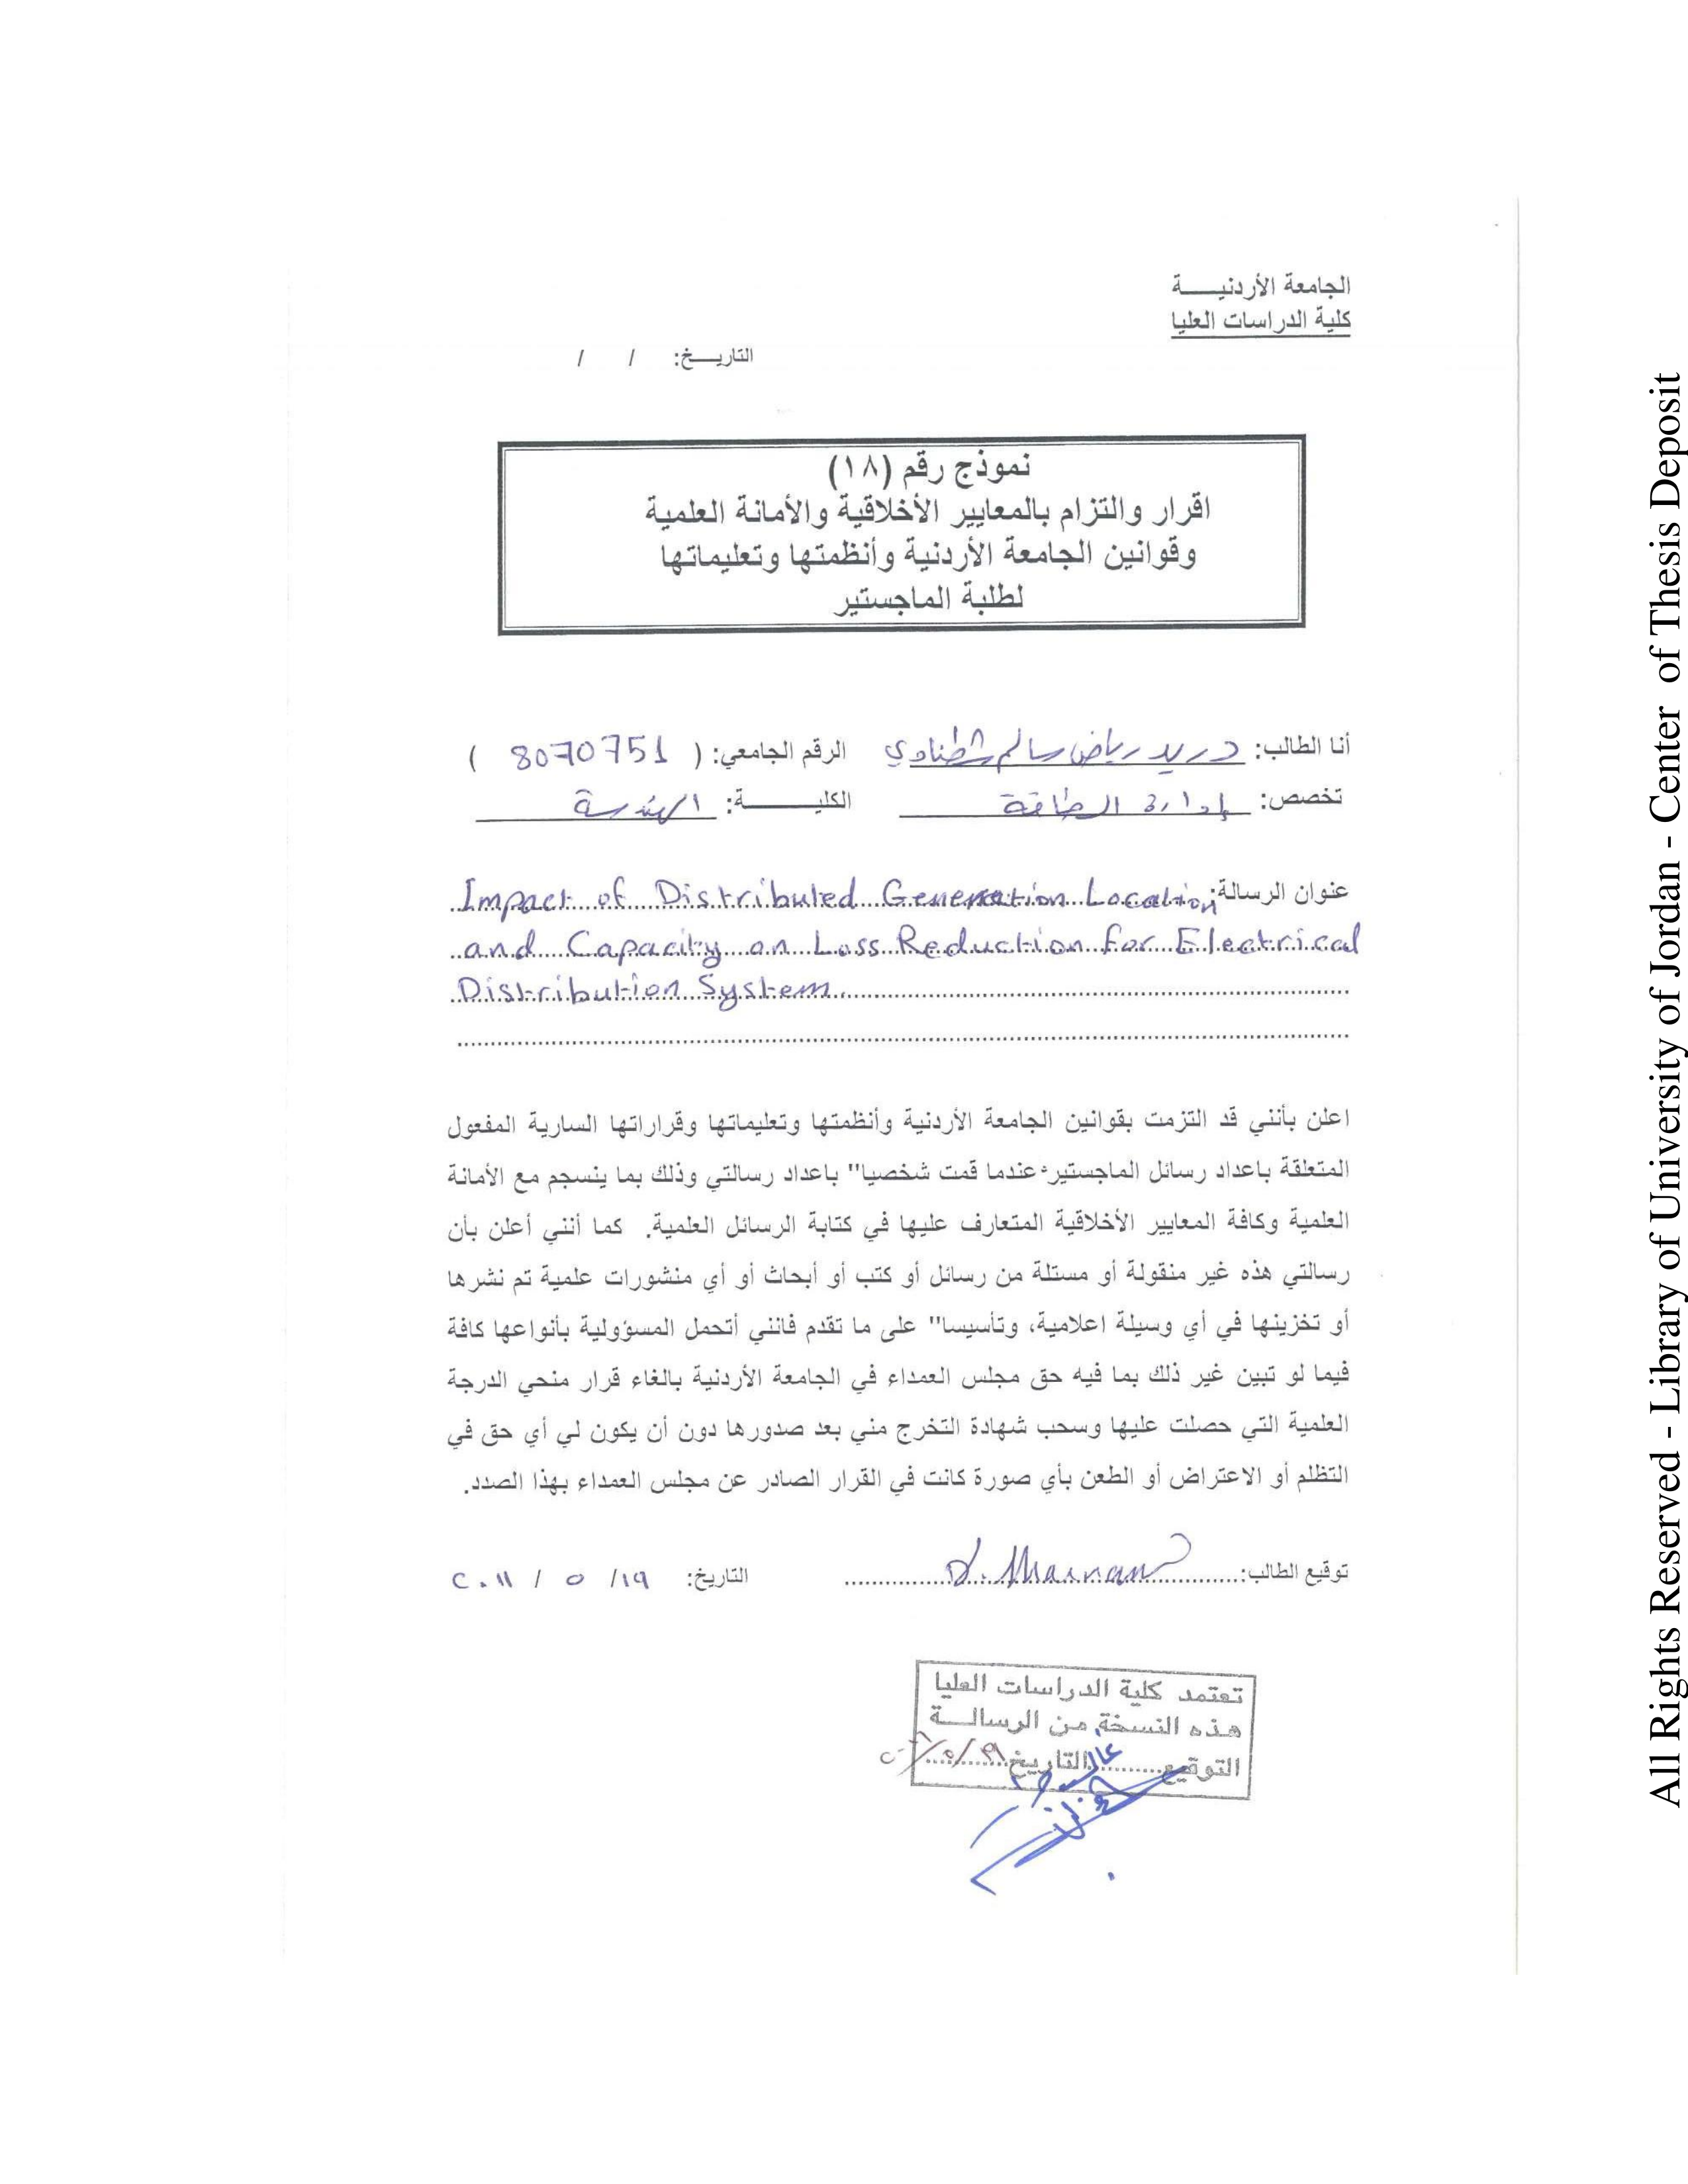 الجامعة الأردنيـــــة
كلية الدراسات العليا
التاريـــخ: / /
نموذج رقم (١٨)
اقرار والتزام بالمعايير الأخلاقية والأمانة العلمية
وقوانين الجامعة الأردنية وأنظمتها وتعليماتها
لطلبة الماجستير
أنا الطالب: دريد رياض سالم شطناوي الرقم الجامعي: ( 8070751 )
تخصص: إدارة الطاقة الكليـــــــــة: الهندسة
عنوان الرسالة: Impact of Distributed Generation Location
and Capacity on Loss Reduction for Electrical
Distribution System.
اعلن بأنني قد التزمت بقوانين الجامعة الأردنية وأنظمتها وتعليماتها وقراراتها السارية المفعول
المتعلقة باعداد رسائل الماجستير عندما قمت شخصيا" باعداد رسالتي وذلك بما ينسجم مع الأمانة
العلمية وكافة المعايير الأخلاقية المتعارف عليها في كتابة الرسائل العلمية. كما أنني أعلن بأن
رسالتي هذه غير منقولة أو مستلة من رسائل أو كتب أو أبحاث أو أي منشورات علمية تم نشرها
أو تخزينها في أي وسيلة اعلامية، وتأسيسا" على ما تقدم فانني أتحمل المسؤولية بأنواعها كافة
فيما لو تبين غير ذلك بما فيه حق مجلس العمداء في الجامعة الأردنية بالغاء قرار منحي الدرجة
العلمية التي حصلت عليها وسحب شهادة التخرج مني بعد صدورها دون أن يكون لي أي حق في
التظلم أو الاعتراض أو الطعن بأي صورة كانت في القرار الصادر عن مجلس العمداء بهذا الصدد.
توقيع الطالب: التاريخ: ١٩/ ٥ / ٢٠١١
تعتمد كلية الدراسات العليا
هذه النسخة من الرسالـــة
التوقيع التاريخ
All Rights Reserved - Library of University of Jordan - Center of Thesis Deposit